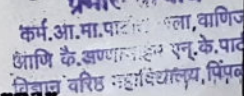 कर्म.आ.मा.पाटील कला, वाणिज
आणि कै.अण्णासाहेब एन.के.पाट
विज्ञान वरिष्ठ महाविद्यालय, पिंपळ